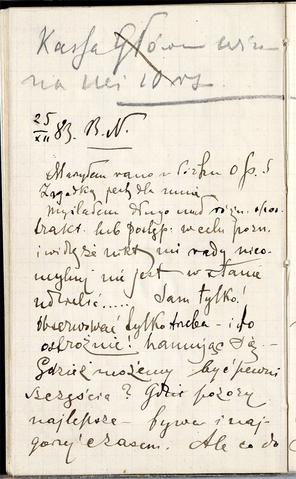 Kassa Główn win
na nei 10 rs.
25/XII 83. B. N.
Marzyłem rano w łóżku o p. S
Zagadką jest dla mnie
myślałem długo nad
trakt. lub postęp: w celu pozn.
i widzę że nikt mi rady nieo-
mylnej nie jest w stanie
udzielić..... Sam tylko!
Obserwować tylko trzeba - i to
ostrożnie: hamując się -
Gdzież możemy być pewni
szczęścia? Gdzie pozory
najlepsze - bywa i naj-
gorzej czasem. Ale co do